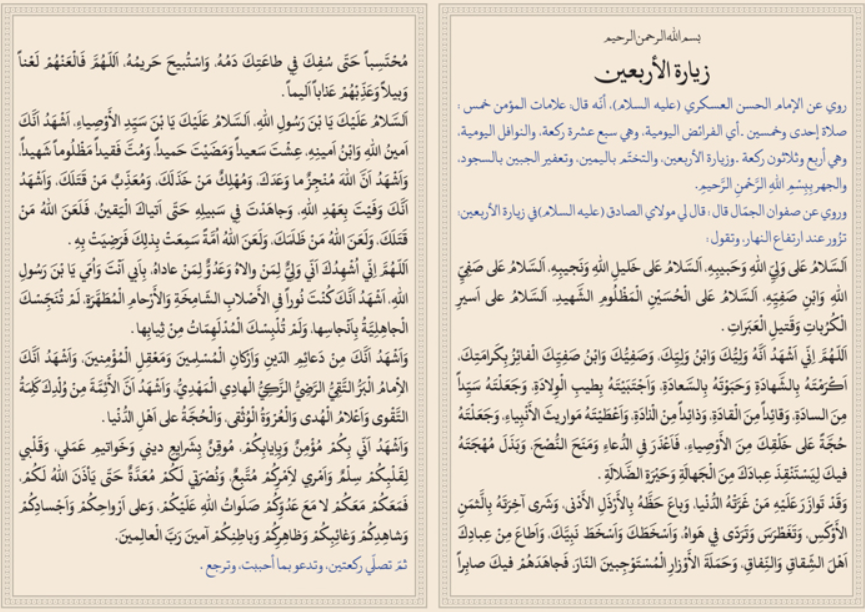 بسم الله الرحمن الرحيم
زيارة الأربعين
روي عن الإمام الحسن العسكري (عليه السلام)، أنّه قال: علامات المؤمن خمس :
صلاة إحدى وخمسين ـ أي الفرائض اليومية، وهي سبع عشرة ركعة، والنوافل اليومية،
وهي أربع وثلاثون ركعة ـ وزيارة الأربعين، والتختّم باليمين، وتعفير الجبين بالسجود،
والجهر بِبِسْمِ اللهِ الرَّحْمنِ الرَّحيمِ.
وروي عن صفوان الجمّال قال : قال لي مولاي الصادق (عليه السلام) في زيارة الأربعين:
تزُور عند ارتفاع النهار، وتقول :
اَلسَّلامُ عَلى وَلِيِّ اللهِ وَحَبيبِهِ، اَلسَّلامُ عَلى خَليلِ اللهِ وَنَجيبِهِ، اَلسَّلامُ عَلى صَفِيِّ
اللهِ وَابْنِ صَفِيِّهِ، اَلسَّلامُ عَلى الْحُسَيْنِ الْمَظْلُومِ الشَّهيدِ، اَلسَّلامُ على اَسيرِ
الْكُرُباتِ وَقَتيلِ الْعَبَراتِ .
اَللّهُمَّ اِنّي اَشْهَدُ اَنَّهُ وَلِيُّكَ وَابْنُ وَلِيِّكَ، وَصَفِيُّكَ وَابْنُ صَفِيِّكَ الْفائِزُ بِكَرامَتِكَ،
اَكْرَمْتَهُ بِالشَّهادَةِ وَحَبَوْتَهُ بِالسَّعادَةِ، وَاَجْتَبَيْتَهُ بِطيبِ الْوِلادَةِ، وَجَعَلْتَهُ سَيِّداً
مِنَ السادَةِ، وَقائِداً مِنَ الْقادَةِ، وَذائِداً مِنَ الْذادَةِ، وَاَعْطَيْتَهُ مَواريثَ الاْنْبِياءِ، وَجَعَلْتَهُ
حُجَّةً عَلى خَلْقِكَ مِنَ الاْوْصِياءِ، فَاَعْذَرَ فىِ الدُّعاءِ وَمَنَحَ النُّصْحَ، وَبَذَلَ مُهْجَتَهُ
فيكَ لِيَسْتَنْقِذَ عِبادَكَ مِنَ الْجَهالَةِ وَحَيْرَةِ الضَّلالَةِ .
وَقَدْ تَوازَرَ عَلَيْهِ مَنْ غَرَّتْهُ الدُّنْيا، وَباعَ حَظَّهُ بِالاْرْذَلِ الاْدْنى، وَشَرى آخِرَتَهُ بِالَّثمَنِ
الاْوْكَسِ، وَتَغَطْرَسَ وَتَرَدّى فِي هَواهُ، وَاَسْخَطَكَ وَاَسْخَطَ نَبِيَّكَ، وَاَطاعَ مِنْ عِبادِكَ
اَهْلَ الشِّقاقِ وَالنِّفاقِ، وَحَمَلَةَ الاْوْزارِ الْمُسْتَوْجِبينَ النّارَ، فَجاهَدَهُمْ فيكَ صابِراً
مُحْتَسِباً حَتّى سُفِكَ فِي طاعَتِكَ دَمُهُ، وَاسْتُبيحَ حَريمُهُ، اَللّهُمَّ فَالْعَنْهُمْ لَعْناً
وَبيلاً وَعَذِّبْهُمْ عَذاباً اَليماً .
اَلسَّلامُ عَلَيْكَ يَا بْنَ رَسُولِ اللهِ، اَلسَّلامُ عَلَيْكَ يَا بْنَ سَيِّدِ الاْوْصِياءِ، اَشْهَدُ اَنَّكَ
اَمينُ اللهِ وَابْنُ اَمينِهِ، عِشْتَ سَعيداً وَمَضَيْتَ حَميداً، وَمُتَّ فَقيداً مَظْلُوماً شَهيداً،
وَاَشْهَدُ اَنَّ اللهَ مُنْجِزٌ ما وَعَدَكَ، وَمُهْلِكٌ مَنْ خَذَلَكَ، وَمُعَذِّبٌ مَنْ قَتَلَكَ، وَاَشْهَدُ
اَنَّكَ وَفَيْتَ بِعَهْدِ اللهِ، وَجاهَدْتَ فِي سَبيلِهِ حَتّى اَتياكَ الْيَقينُ، فَلَعَنَ اللهُ مَنْ
قَتَلَكَ، وَلَعَنَ اللهُ مَنْ ظَلَمَكَ، وَلَعَنَ اللهُ اُمَّةً سَمِعَتْ بِذلِكَ فَرَضِيَتْ بِهِ .
اَللّهُمَّ اِنّي اُشْهِدُكَ اَنّي وَلِيٌّ لِمَنْ والاهُ وَعَدُوٌّ لِمَنْ عاداهُ، بِاَبي اَنْتَ وَاُمّي يَا بْنَ رَسُولِ
اللهِ، اَشْهَدُ اَنَّكَ كُنْتَ نُوراً فىِ الاْصْلابِ الشّامِخَةِ وَالاْرْحامِ الْمُطَهَّرَةِ، لَمْ تُنَجِّسْكَ
الْجاهِلِيَّةُ بِاَنْجاسِها، وَلَمْ تُلْبِسْكَ الْمُدْلَهِمّاتُ مِنْ ثِيابِها .
وَاَشْهَدُ اَنَّكَ مِنْ دَعائِمِ الدّينِ وَاَرْكانِ الْمُسْلِمينَ وَمَعْقِلِ الْمُؤْمِنينَ، وَاَشْهَدُ اَنَّكَ
الاْمامُ الْبَرُّ التَّقِيُّ الرَّضِيُّ الزَّكِيُّ الْهادِي الْمَهْدِيُّ، وَاَشْهَدُ اَنَّ الاْئِمَّةَ مِنْ وُلْدِكَ كَلِمَةُ
التَّقْوى وَاَعْلامُ الْهُدى وَالْعُرْوَةُ الْوُثْقى، وَالْحُجَّةُ على اَهْلِ الدُّنْيا .
وَاَشْهَدُ اَنّي بِكُمْ مُؤْمِنٌ وَبِاِيابِكُمْ، مُوقِنٌ بِشَرايِعِ ديني وَخَواتيمِ عَمَلي، وَقَلْبي
لِقَلْبِكُمْ سِلْمٌ وَاَمْري لاِمْرِكُمْ مُتَّبِعٌ، وَنُصْرَتي لَكُمْ مُعَدَّةٌ حَتّى يَأْذَنَ اللهُ لَكُمْ،
فَمَعَكُمْ مَعَكُمْ لا مَعَ عَدُوِّكُمْ صَلَواتُ اللهِ عَلَيْكُمْ، وَعلى اَرْواحِكُمْ وَاَجْسادِكُمْ
وَشاهِدِكُمْ وَغائِبِكُمْ وَظاهِرِكُمْ وَباطِنِكُمْ آمينَ رَبَّ الْعالِمينَ.
ثمّ تصلّي ركعتين، وتدعو بما أحببت، وترجع .